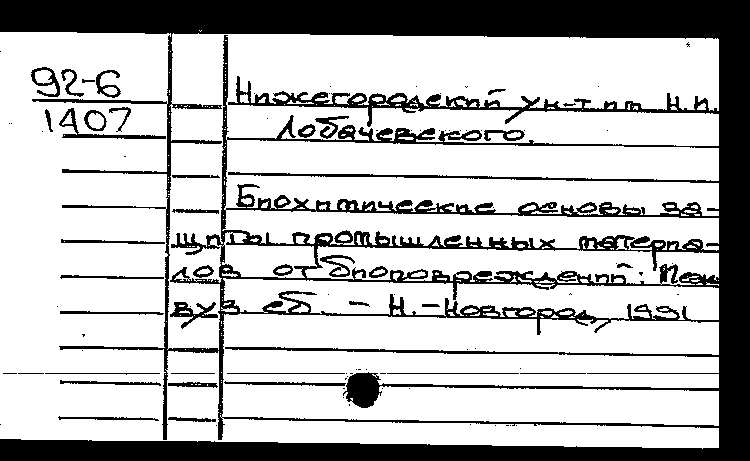 92-6
1407
Нижегородский ун-т им Н.И.
Лобачевского.
Биохимические основы за-
щиты промышленных материа-
лов от биоповреждений: Меж
вуз. сб. - Н.-Новгород, 1991